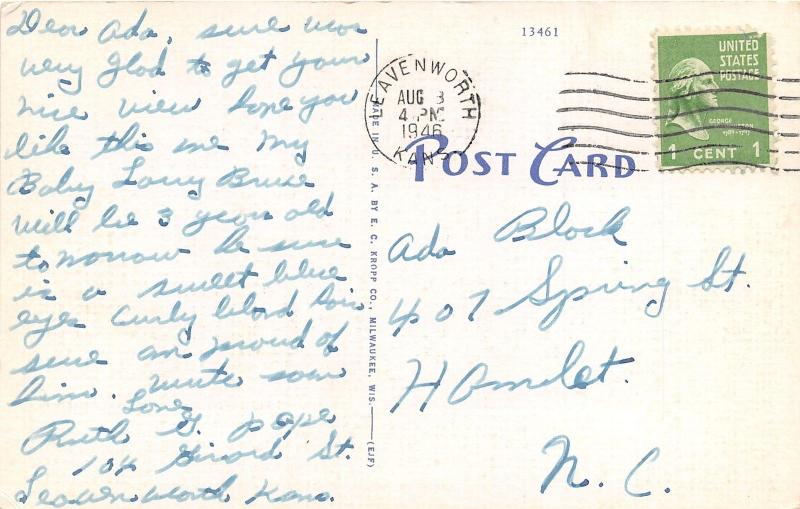 Dear Ada, sure was
very glad to get your
nice view done you
like this one My
Baby Larry Bruce
will be 3 years old
tomorrow he sure
is a sweet blue
eyes curly blond hair
sure am proud of
him. write soon
Love
Ruth G. Pope
104 Girard St.
Leavenworth Kans.
MADE IN U. S. A. BY E. C. KROPP CO., MILWAUKEE, WIS.
(EJF)
13461
LEAVENWORTH
AUG 3
4 PM
1946
KANS
UNITED
STATES
POSTAGE
GEORGE
WASHINGTON
1 CENT 1
POST CARD
Ada Block
407 Spring St.
Hamlet.
N. C.